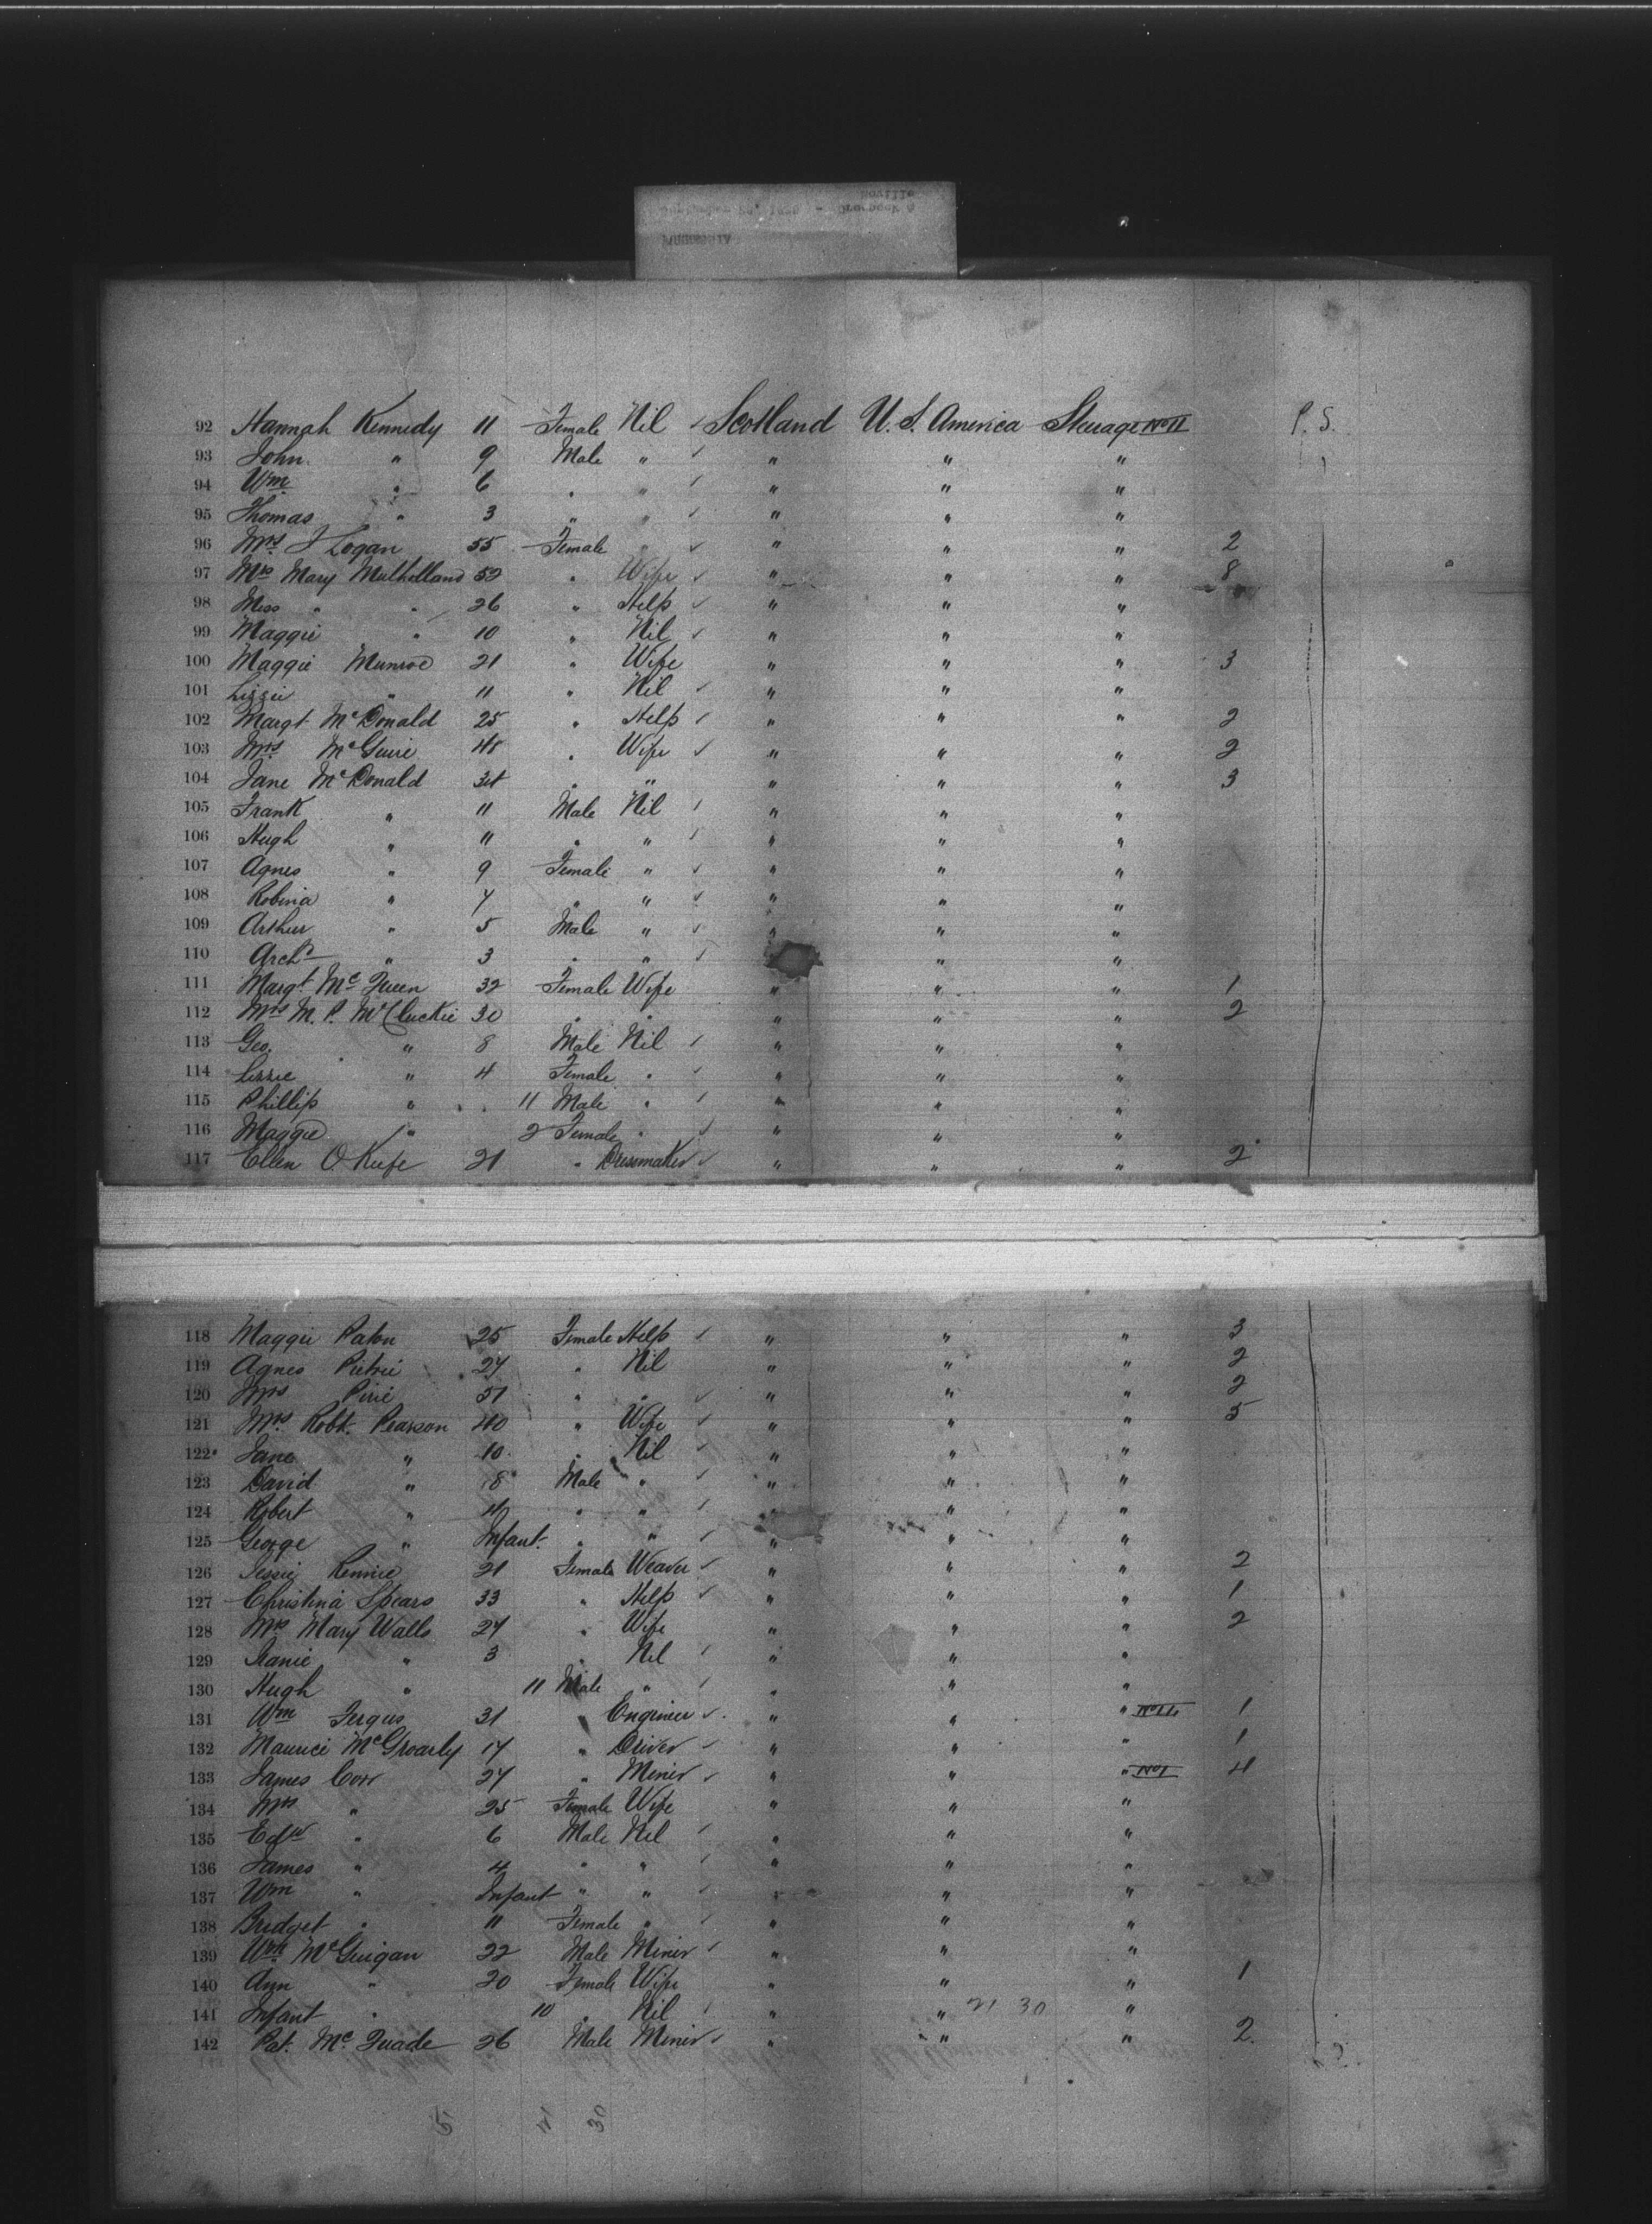 92 Hannah Kennedy 11 Female Nil ✓ Scotland U.S. America Steerage No II P. S.
93 John " 9 Male " ✓ " " "
94 Wm " 6 " " ✓ " " "
95 Thomas " 3 " " ✓ " " "
96 Mrs J Logan 55 Female " ✓ " " " 2
97 Mrs Mary Mulholland 52 " Wife ✓ " " " 8
98 Miss " " 26 " Help ✓ " " "
99 Maggie " 10 " Nil ✓ " " "
100 Maggie Munroe 21 " Wife " " " 3
101 Lizzie " 11 " Nil ✓ " " "
102 Margt McDonald 25 " Help ✓ " " " 2
103 Mrs McGuire 48 " Wife ✓ " " " 2
104 Jane McDonald 34 " " " " " 3
105 Frank " 11 Male Nil ✓ " " "
106 Hugh " 11 " " ✓ " " "
107 Agnes " 9 Female " ✓ " " "
108 Robina " 7 " " ✓ " " "
109 Arthur " 5 Male " ✓ " " "
110 Archd " 3 " " ✓ " "
111 Margt McQueen 32 Female Wife " " " 1
112 Mrs M. P. McCluckie 30 " " " " " 2
113 Geo. " 8 Male Nil ✓ " " "
114 Lizzie " 4 Female " ✓ " " "
115 Phillip " 11 Male " ✓ " " "
116 Maggie " 2 Female " ✓ " " "
117 Ellen O Keefe 21 " Dressmaker ✓ " " " 2
118 Maggie Paton 25 Female Help ✓ " " " 3
119 Agnes Pietrie 27 " Nil " " " 2
120 Mrs Pirie 51 " " ✓ " " " 2
121 Mrs Robt. Pearson 40 " Wife ✓ " " " 5
122 Jane " 10 " Nil ✓ " " "
123 David " 8 Male " ✓ " " "
124 Robert " 4 " " ✓ " " "
125 George " Infant. " " ✓ " " "
126 Jessie Rennie 21 Female Weaver ✓ " " " 2
127 Christina Spears 33 " Help ✓ " " " 1
128 Mrs Mary Walls 27 " Wife " " " 2
129 Jeanie " 3 " Nil ✓ " " "
130 Hugh " 11 Male " ✓ " " "
131 Wm Fergus 31 " Engineer ✓ " " " 1
132 Maurice McGroarty 17 " Driver ✓ " " " 1
133 James Corr 27 " Miner ✓ " " " No 1 4
134 Mrs " 25 Female Wife " " "
135 Edwd " 6 Male Nil ✓ " " "
136 James " 4 " " ✓ " " "
137 Wm " Infant " " ✓ " " "
138 Bridget " 11 Female " ✓ " " "
139 Wm McGuigan 22 Male Miner ✓ " " "
140 Ann " 20 Female Wife " " " 1
141 Infant " 10 " Nil ✓ " " 21 30 "
142 Pat. McQuade 26 Male Miner ✓ " " " 2